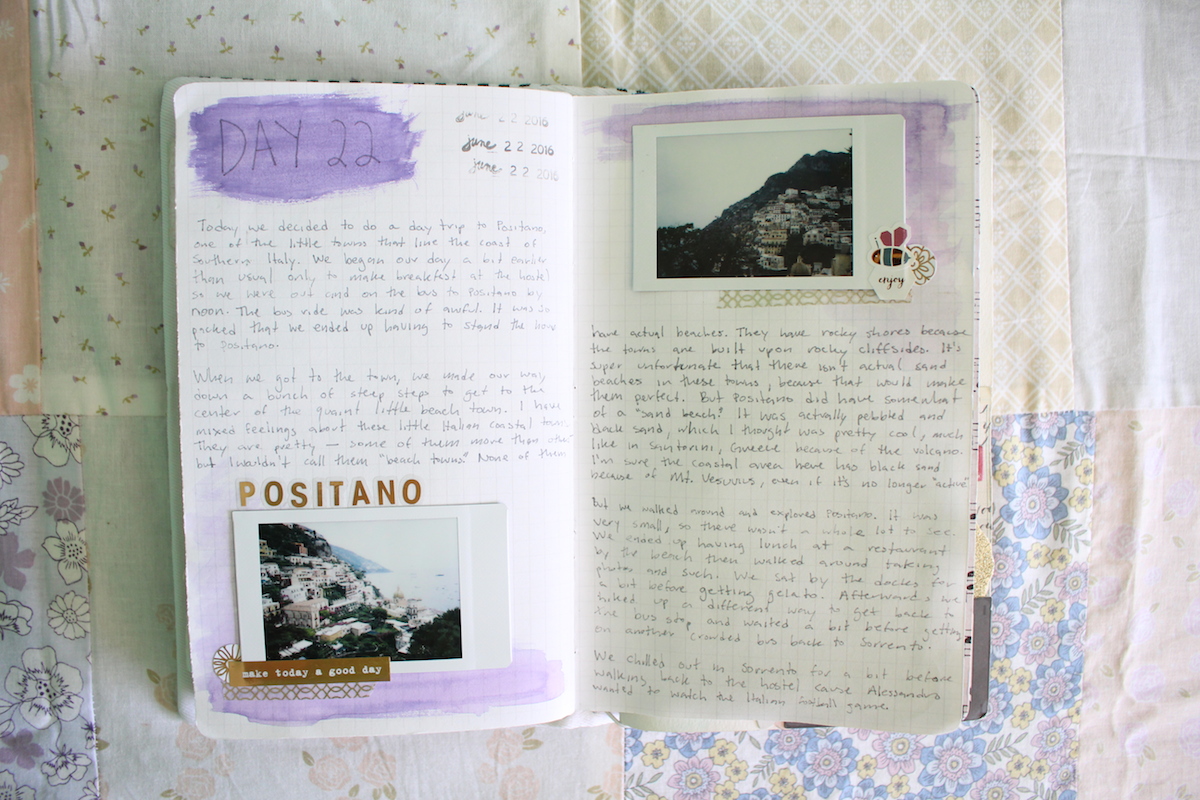 DAY 22
june 22 2016
june 22 2016
june 22 2016
Today, we decided to do a day trip to Positano,
one of the little towns that line the coast of
Southern Italy. We began our day a bit earlier
than usual only to make breakfast at the hostel
so we were out and on the bus to Positano by
noon. The bus ride was kind of awful. It was so
packed that we ended up having to stand the
to Positano.
When we got to the town, we made our way
down a bunch of steep steps to get to the
center of the quaint little beach town. I have
mixed feelings about these little Italian coastal towns.
They are pretty — some of them more than others
but I wouldn't call them "beach towns." None of them
POSITANO
make today a good day
enjoy
have actual beaches. They have rocky shores because
the towns are built upon rocky cliffsides. It's
super unfortunate that there isn't actual sand
beaches in these towns, because that would make
them perfect. But Positano did have somewhat
of a "sand beach." It was actually pebbled and
black sand, which I thought was pretty cool, much
like in Santorini, Greece because of the volcano.
I'm sure the coastal area here has black sand
because of Mt. Vesuvius, even if it's no longer "active"
But we walked around and explored Positano. It was
very small, so there wasn't a whole lot to see.
We ended up having lunch at a restaurant
by the beach then walked around taking
photos and such. We sat by the docks for
a bit before getting gelato. Afterwards we
hiked up a different way to get back to
the bus stop and waited a bit before getting
on another crowded bus back to Sorrento.
We chilled out in Sorrento for a bit before
walking back to the hostel cause Alessandro
wanted to watch the Italian football game.